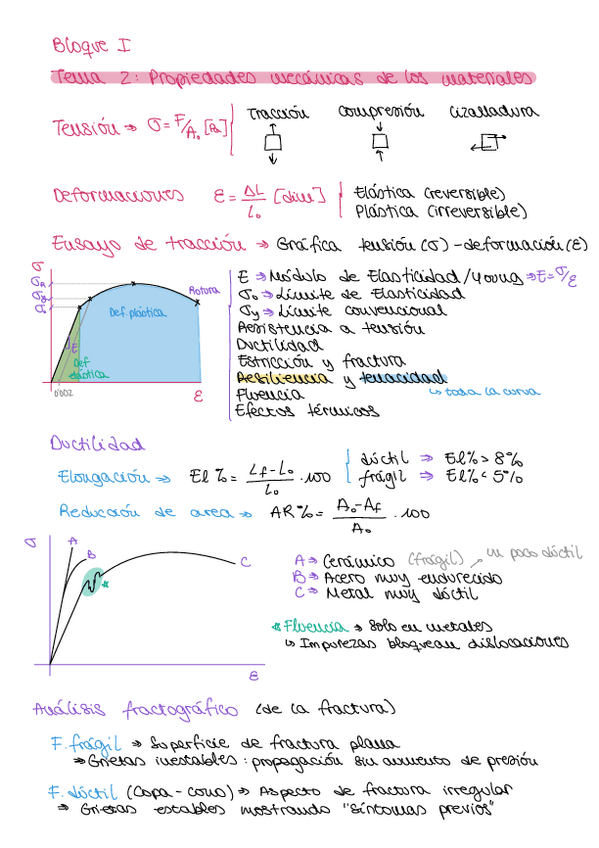 Bloque I
Tema 2: Propiedades mecánicas de los materiales
Tensión ⇒ σ = F/A₀ [Pa]
Tracción compresión cizalladura
Deformaciones ε = ΔL/L₀ [dim]
Elástica (reversible)
Plástica (irreversible)
Ensayo de tracción → Gráfica tensión (σ) - deformación (ε)
σ
Rotura
Def. plástica
E
Def
elástica
0'002
ε
E ⇒ Módulo de Elasticidad/Young ⇒ E = σ/ε
σ₀ ⇒ Límite de Elasticidad
σy ⇒ Límite convencional
Resistencia a tensión
Ductilidad
Estricción y fractura
Resiliencia y tenacidad
↳ toda la curva
Fluencia
Efectos térmicos
Ductilidad
Elongación ⇒ El % = (Lf - L₀)/L₀ · 100
dúctil ⇒ El% > 8%
frágil ⇒ El% < 5%
Reducción de area ⇒ AR% = (A₀ - Af)/A₀ · 100
σ
A
B
C
*
ε
A ⇒ Cerámico (frágil) un poco dúctil
B ⇒ Acero muy endurecido
C ⇒ Metal muy dúctil
* Fluencia → Solo en metales
↳ Impurezas bloquean dislocaciones
Análisis fractográfico (de la fractura)
F. frágil ⇒ Superficie de fractura plana
⇒ Grietas inestables: propagación sin aumento de presión
F. dúctil (Copa - cono) ⇒ Aspecto de fractura irregular
⇒ Grietas estables mostrando "síntomas previos"